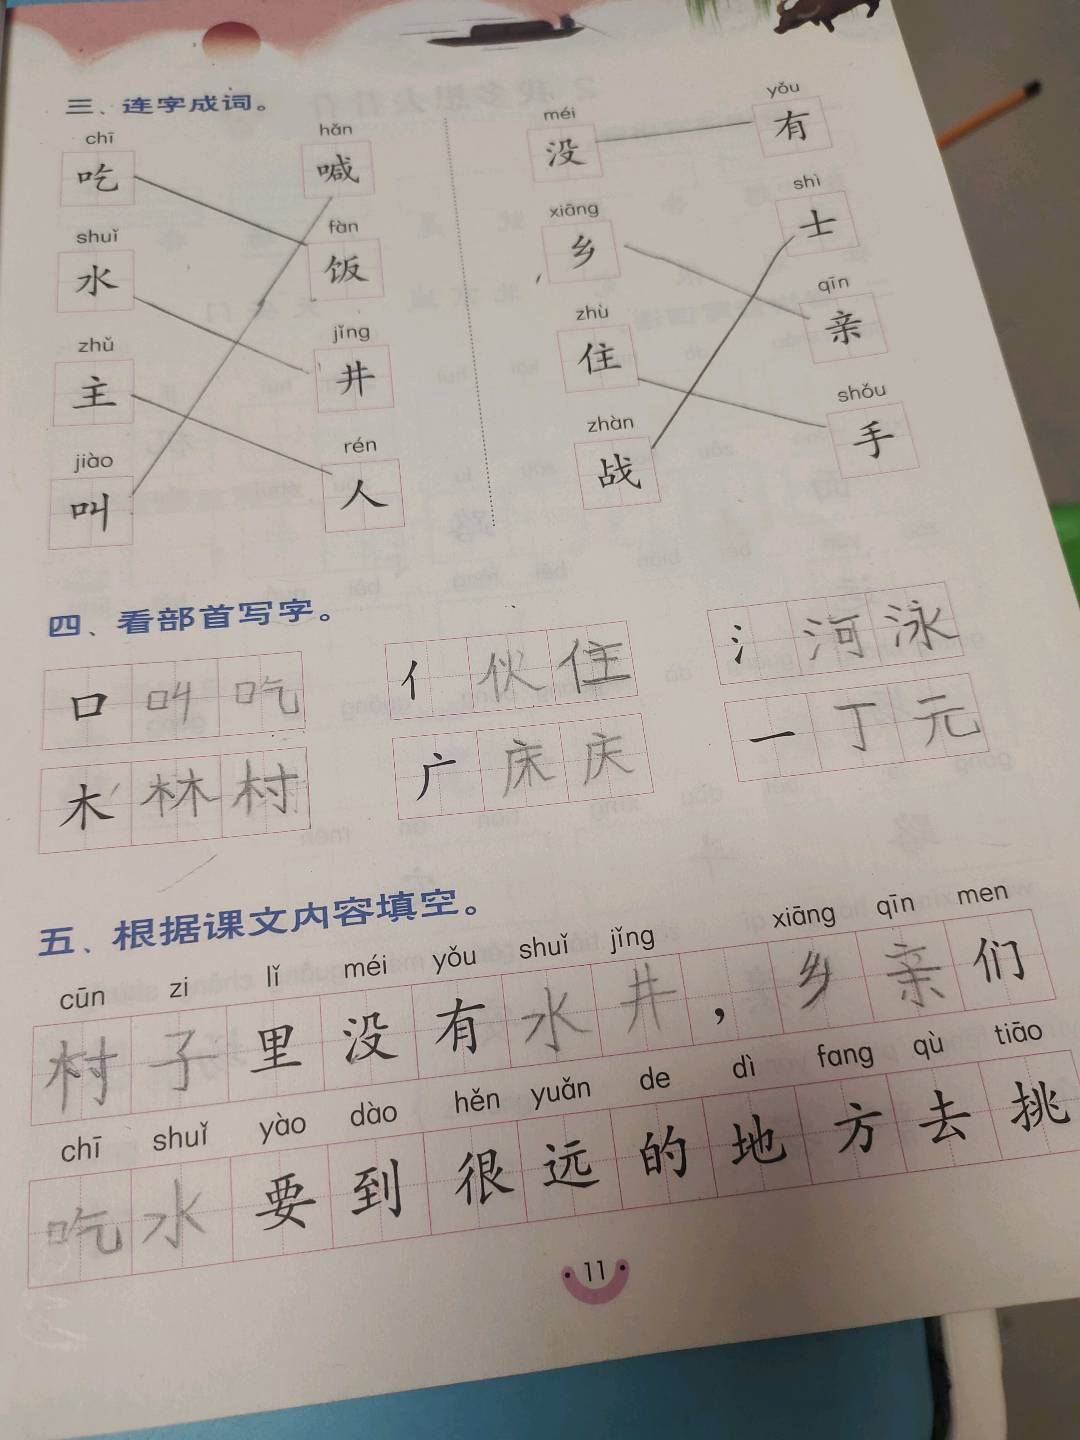 三、连字成词。
chī hǎn méi yǒu
吃 喊 没 有
shuǐ fàn xiāng shì
水 饭 乡 士
zhǔ jǐng zhù qīn
主 井 住 亲
jiào rén zhàn shǒu
叫 人 战 手
四、看部首写字。
口 叫 吃 亻 伙 住 氵 河 泳
木 林 村 广 床 庆 一 丁 元
五、根据课文内容填空。
cūn zi lǐ méi yǒu shuǐ jǐng xiāng qīn men
村 子 里 没 有 水 井 ， 乡 亲 们
chī shuǐ yào dào hěn yuǎn de dì fang qù tiāo
吃 水 要 到 很 远 的 地 方 去 挑
11